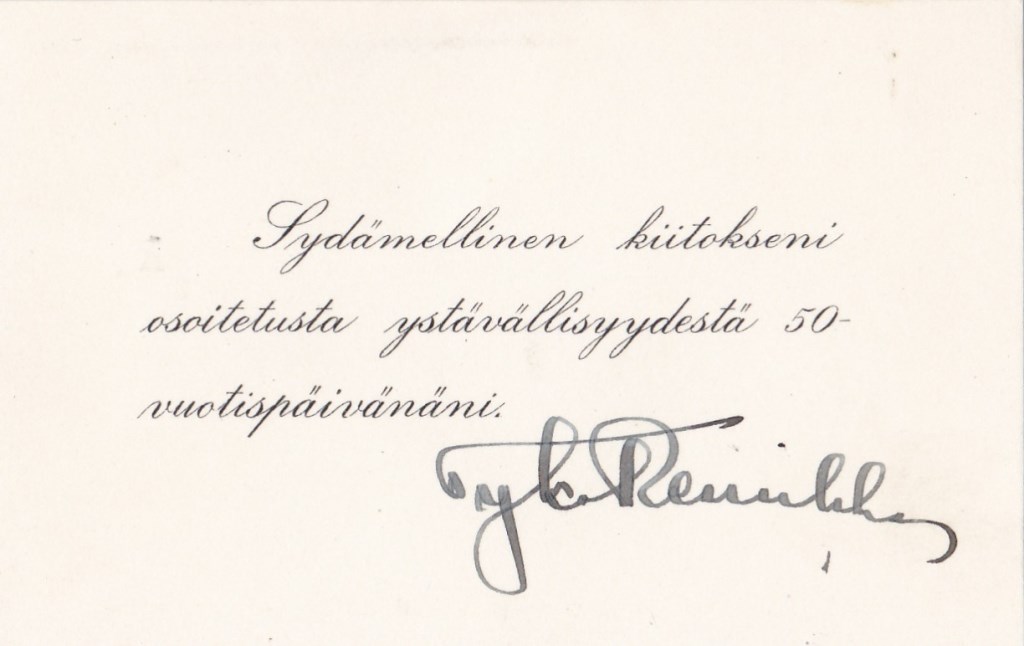 Sydämellinen kiitokseni
osoitetusta ystävällisyydestä 50-
vuotispäivänäni.